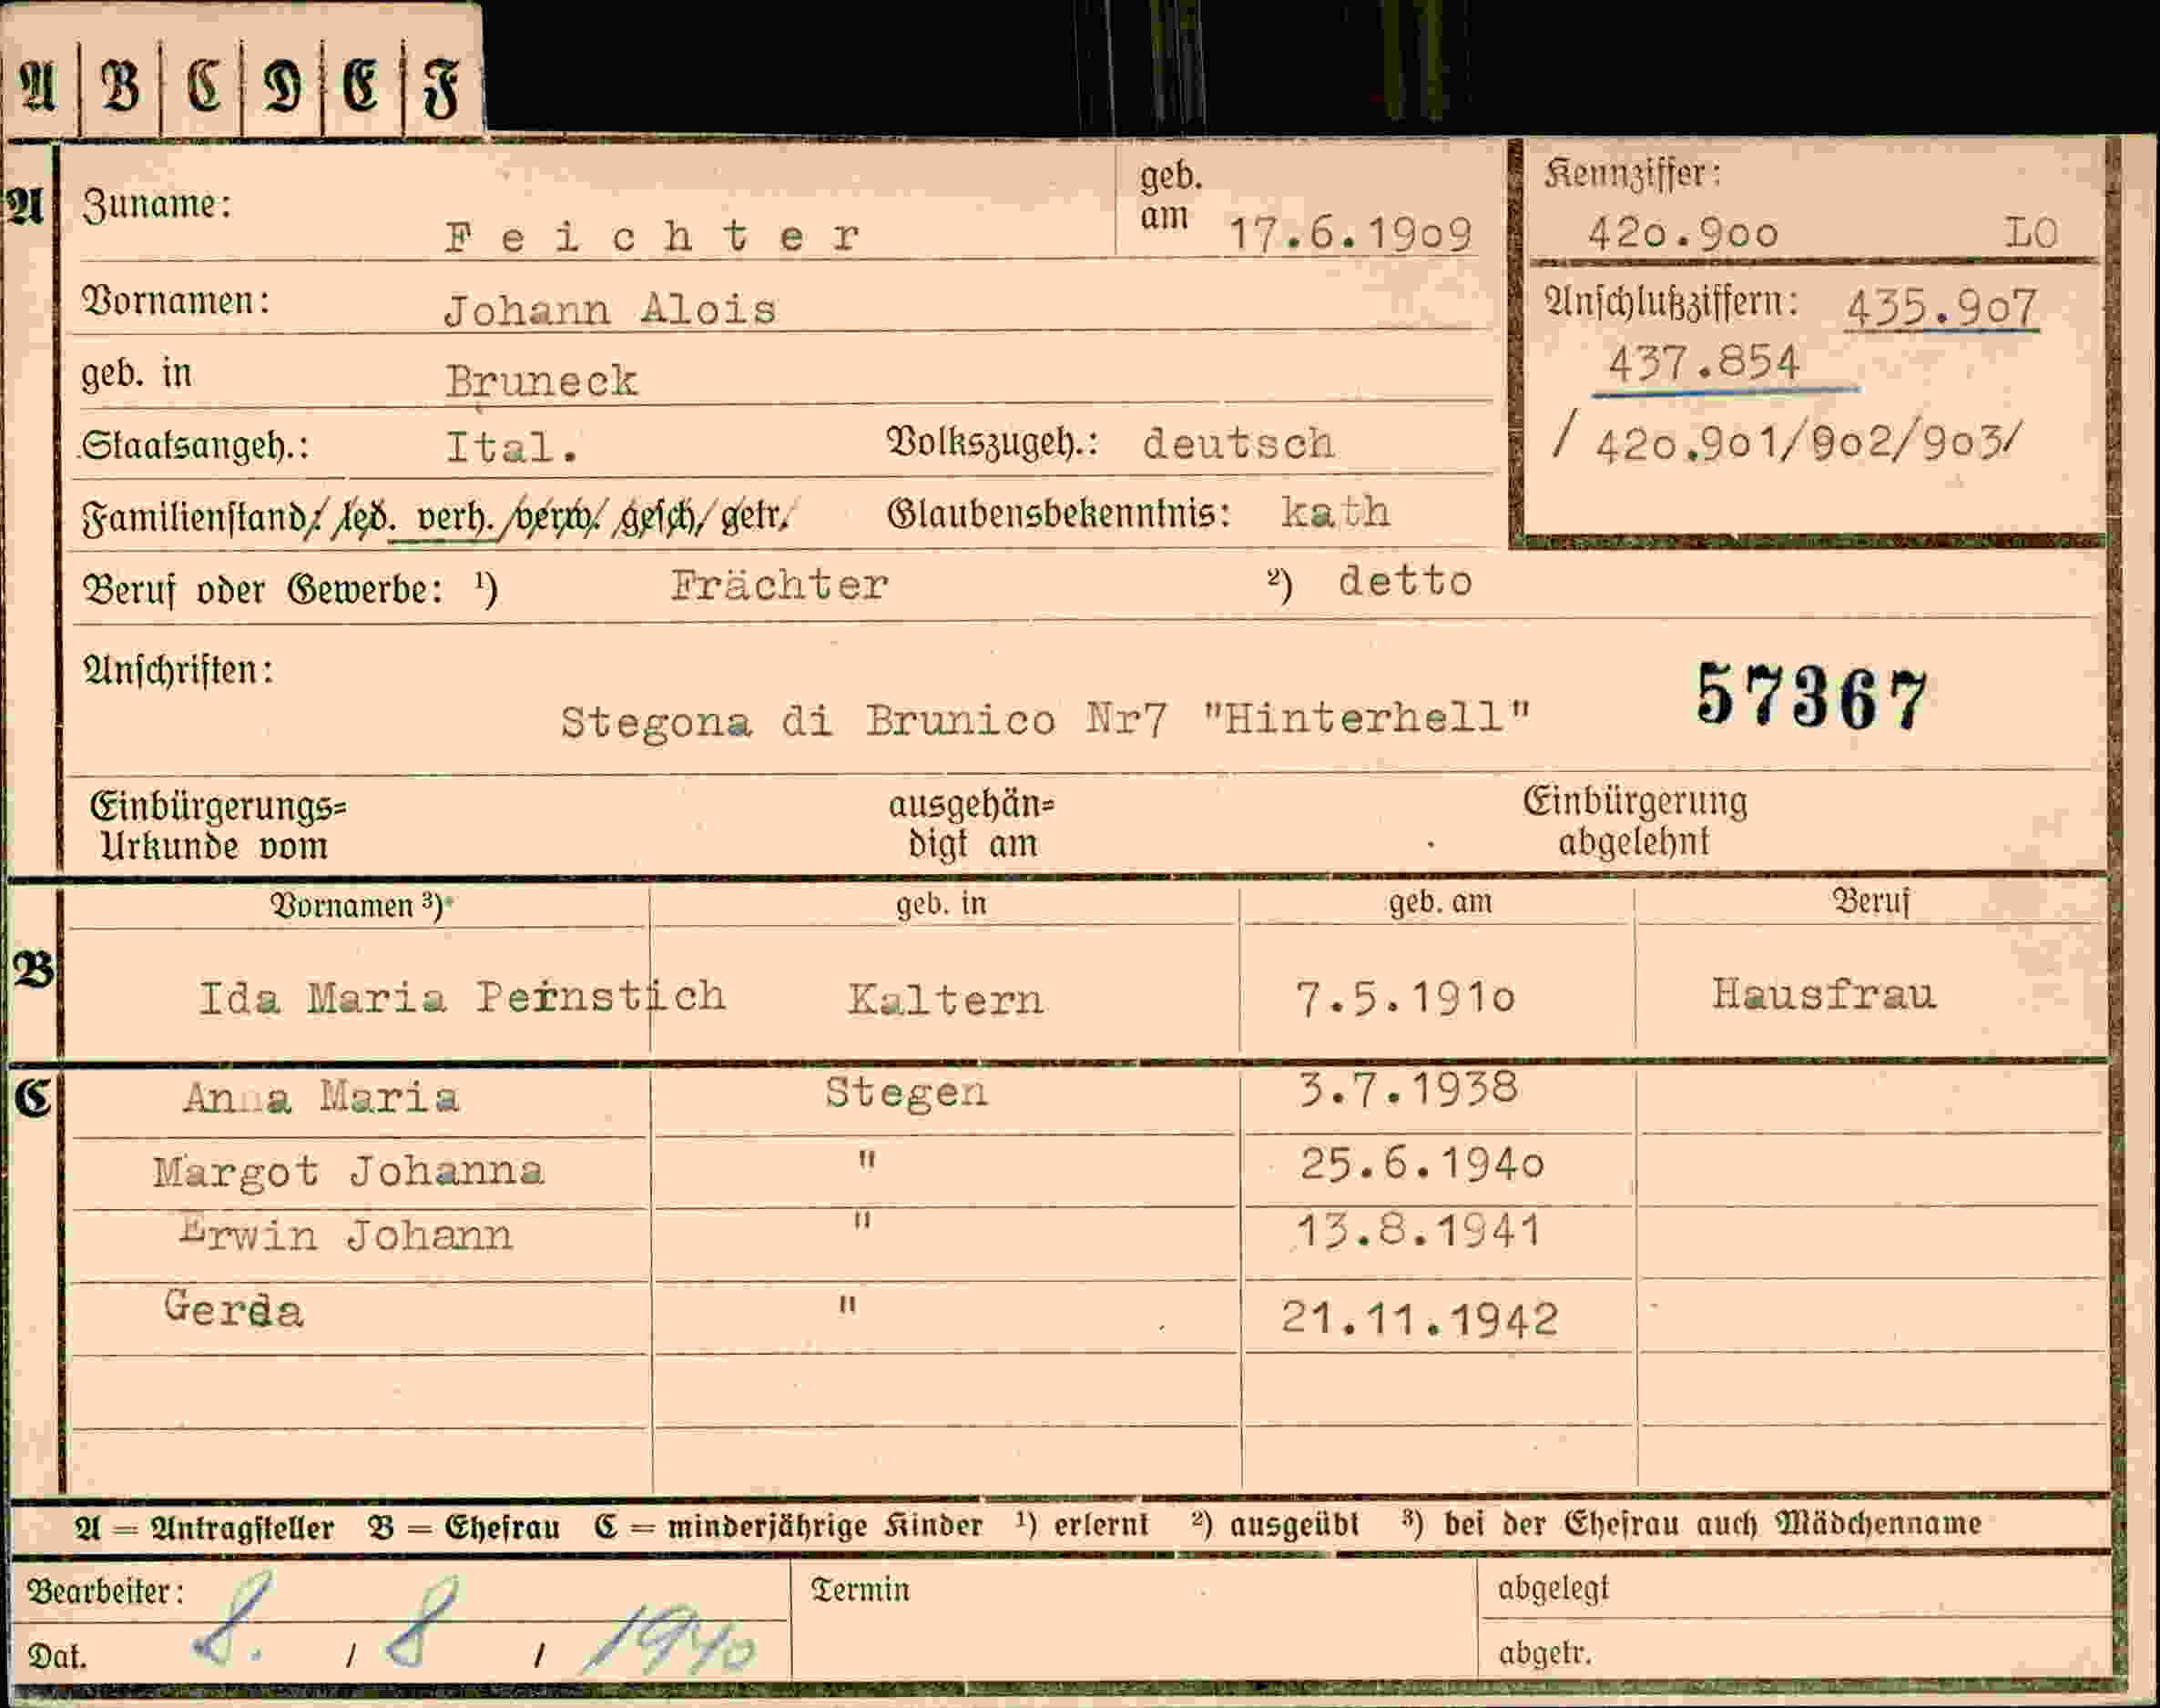 A B C D E F
A Zuname: Feichter geb. am 17.6.1909
Kennziffer: 420.900 LO
Vornamen: Johann Alois
Anschlußziffern: 435.907
437.854
/ 420.901/902/903/
geb. in Bruneck
Staatsangeh.: Ital. Volkszugeh.: deutsch
Familienstand: led. verh. verw. gesch. getr. Glaubensbekenntnis: kath
Beruf oder Gewerbe: ¹) Frächter ²) detto
Anschriften:
Stegona di Brunico Nr7 "Hinterhell" 57367
Einbürgerungs=
Urkunde vom
ausgehän=
digt am
Einbürgerung
abgelehnt
Vornamen ³) geb. in geb. am Beruf
B Ida Maria Pernstich Kaltern 7.5.1910 Hausfrau
C Anna Maria Stegen 3.7.1938
Margot Johanna " 25.6.1940
Erwin Johann " 13.8.1941
Gerda " 21.11.1942
A = Antragsteller B = Ehefrau C = minderjährige Kinder ¹) erlernt ²) ausgeübt ³) bei der Ehefrau auch Mädchenname
Bearbeiter: Termin abgelegt
Dat. 8. / 8 / 1940 abgetr.